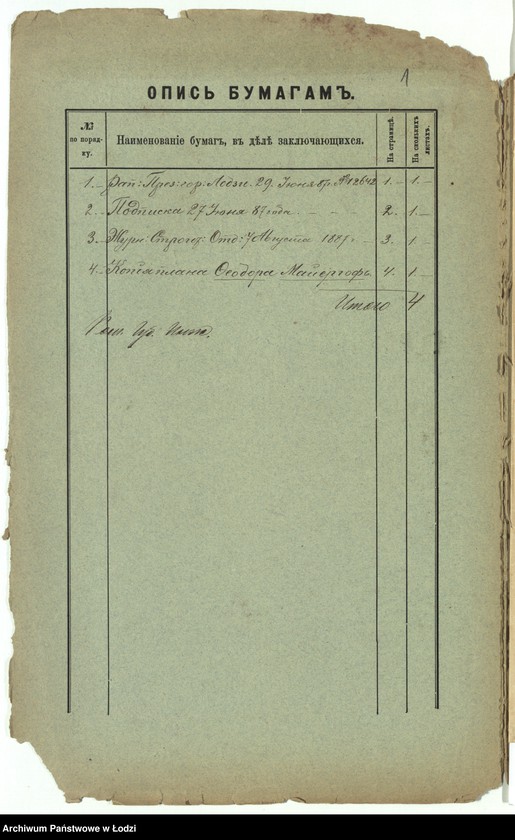 1
ОПИСЬ БУМАГАМЪ.
№
по поряд-
ку.
Наименованіе бумагъ, въ дѣлѣ заключающихся.
На страницѣ.
На сколькихъ листахъ.
1. Рап: През: гор. Лодзи. 29. Іюня №12642 1. 1.
2. Подписка 27 Іюня 87 года 2. 1.
3. Журн: Строит: Отд: 7 Августа 1887 г. 3. 1.
4. Копія плана Ѳеодора Майергофъ 4. 1.
Итого 4
Гу. Инж.
Archiwum Państwowe w Łodzi